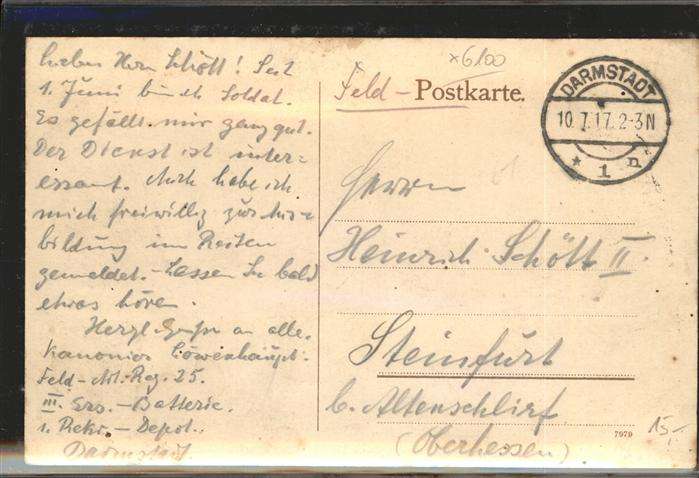 Lieber Herr Schött! Seit
1. Juni bin ich Soldat.
Es gefällt mir ganz gut.
Der Dienst ist inter=
essant. Auch habe ich
mich freiwillig zur Aus=
bildung im Reiten
gemeldet. - Lassen Sie bald
etwas hören.
Herzl. Grüße an alle.
Kanonier Löwenhaupt.
Feld-Art.-Reg. 25.
III. Ers.-Batterie.
1. Rekr.-Depot.
Darmstadt
x6100
Feld-Postkarte.
DARMSTADT
10.7.17. 2-3N
* 1 n
Herrn
Heinrich Schött II.
Steinfurt
b. Altenschlirf
(Oberhessen)
7979
15,-